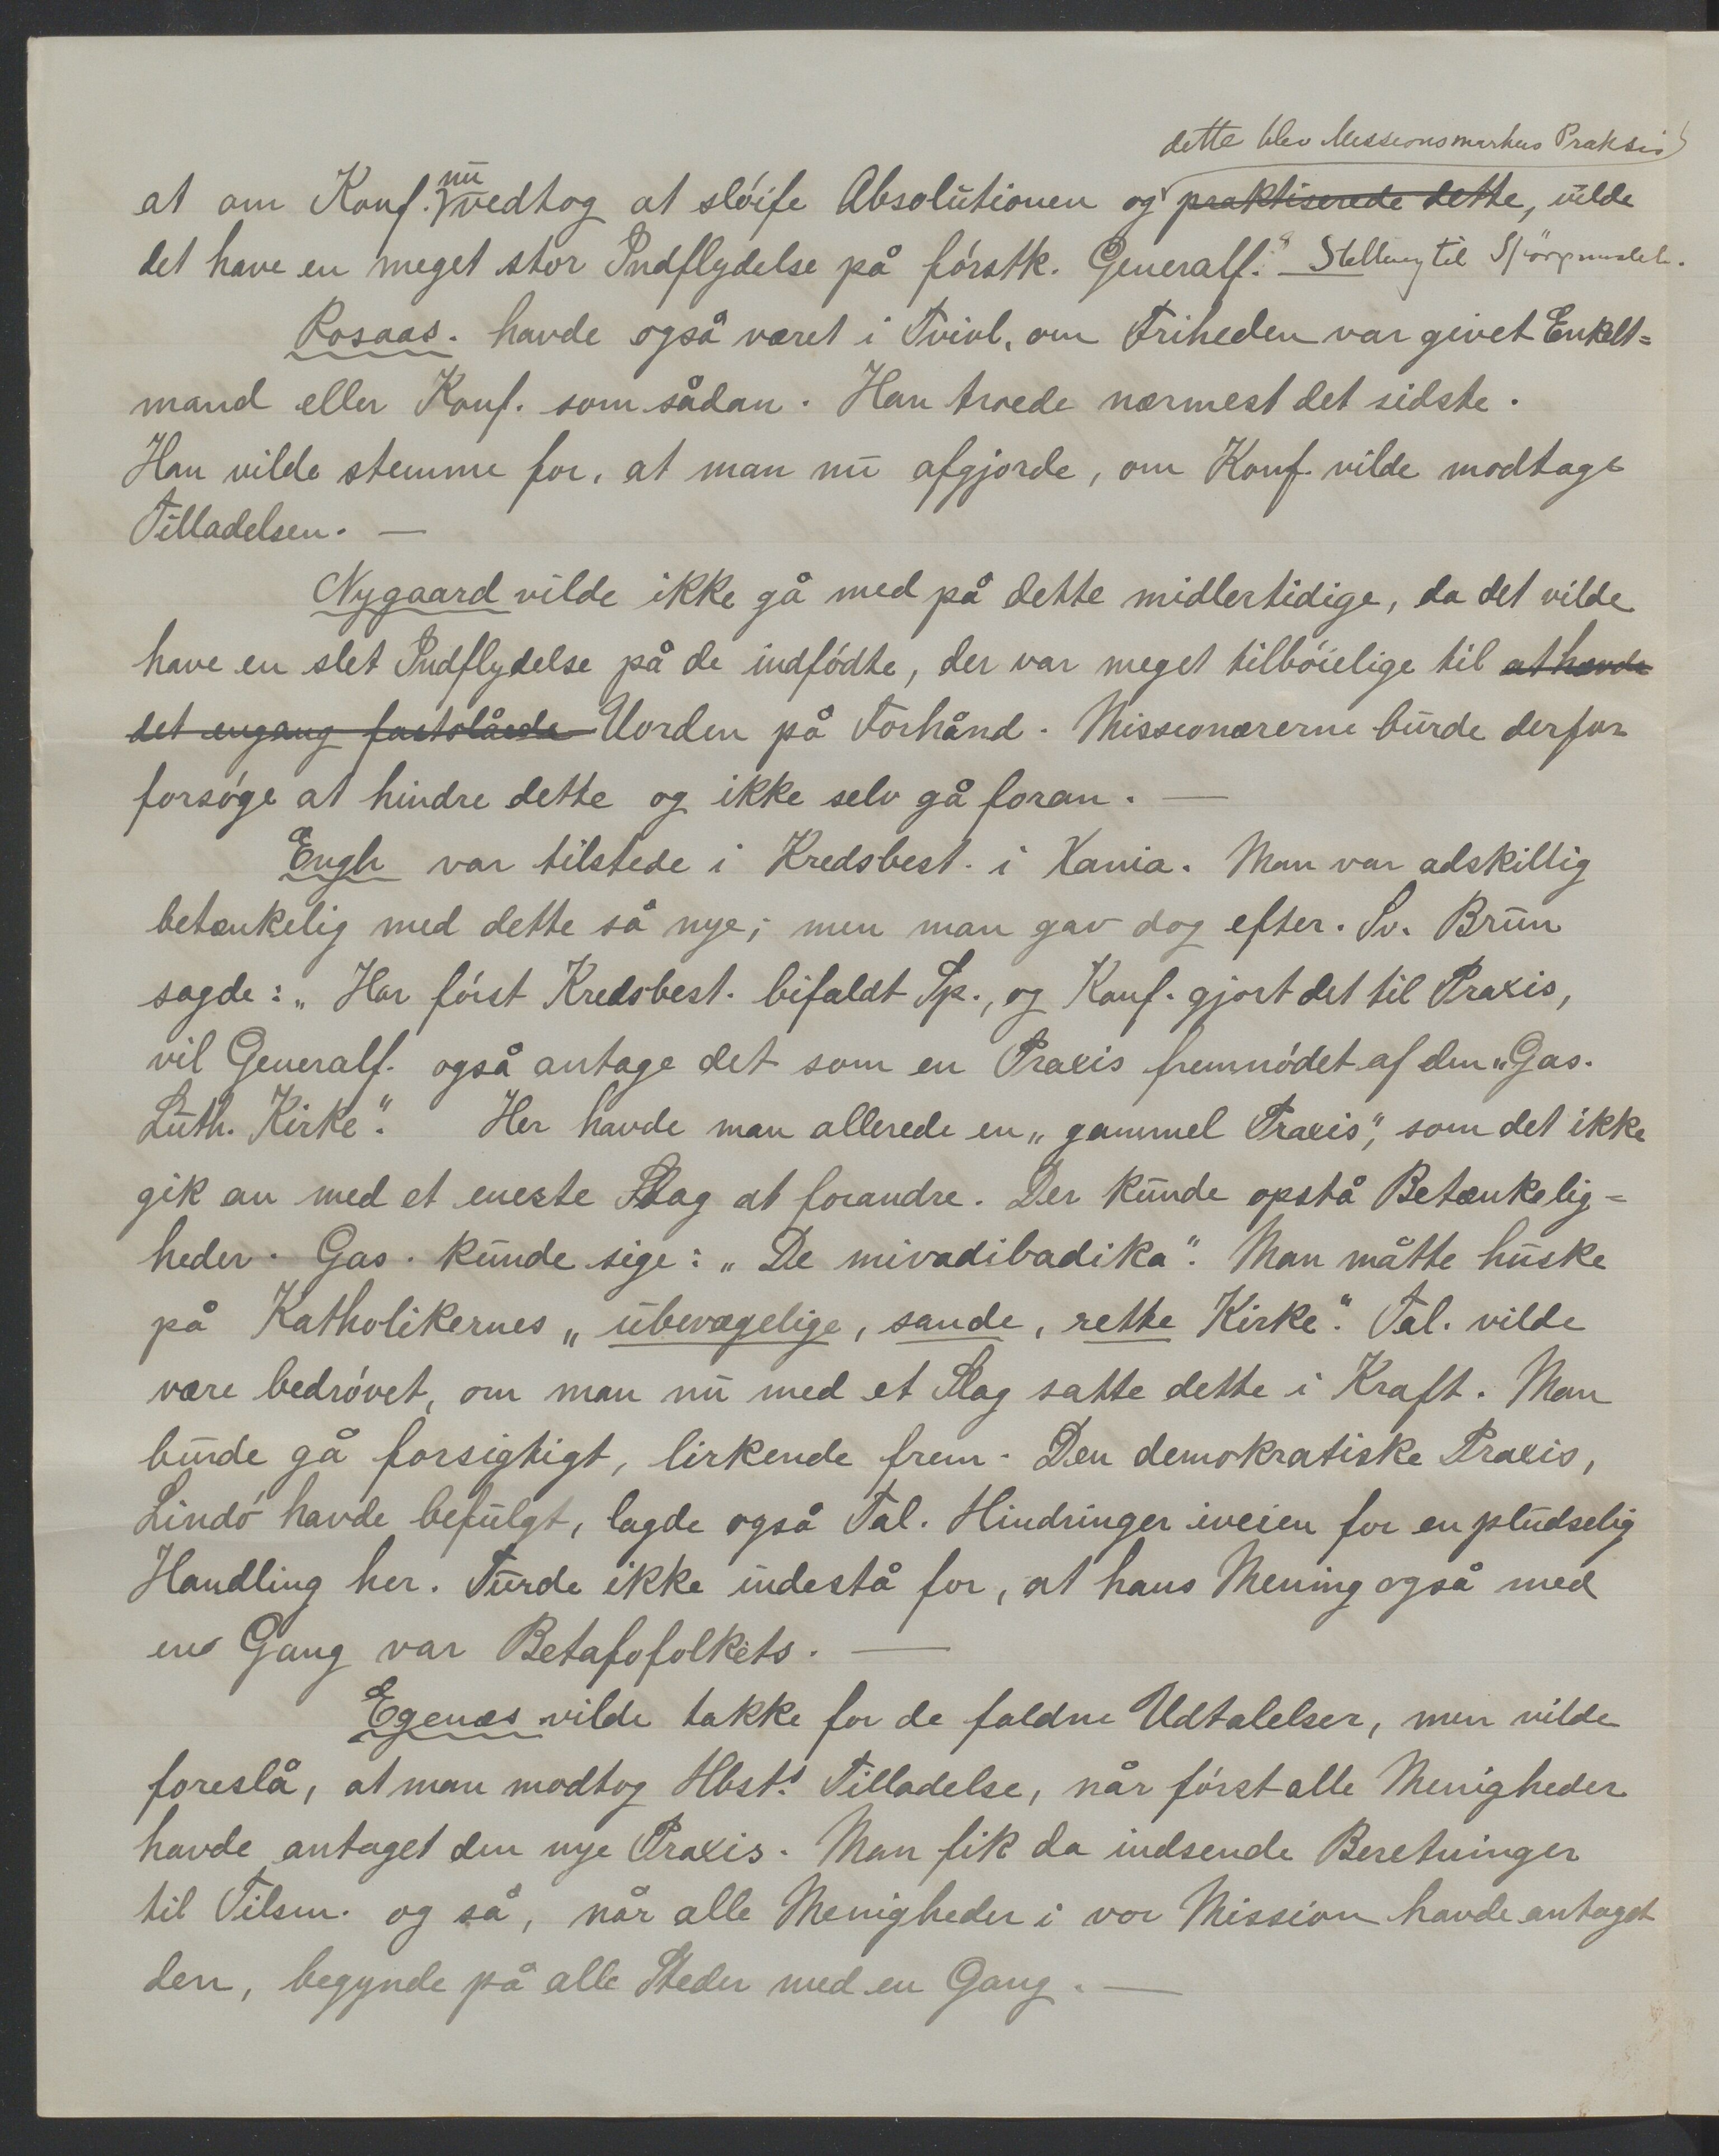 dette blev Missionsmarkens Praksis
nu
at om Konf. vedtog at sløife Absolutionen og praktiserede dette, vilde
det have en meget stor Indflydelse på førstk. Generalf." Stilling til Spörgsmålet.
Rosaas. havde også været i Tvivl, om Friheden var givet Enkelt=
mand eller Konf. som sådan. Han troede nærmest det sidste.
Han vilde stemme for, at man nu afgjorde, om Konf. vilde modtage
Tilladelsen. —
Nygaard vilde ikke gå med på dette midlertidige, da det vilde
have en slet Indflydelse på de indfødte, der var meget tilbøielige til at hævde
det engang fastslåede Uorden på Forhånd. Missionærerne burde derfor
forsøge at hindre dette og ikke selv gå foran. —
Engh var tilstede i Kredsbest. i Xania. Man var adskillig
betænkelig med dette så nye; men man gav dog efter. Sv. Brun
sagde: „Har først Kredsbest. bifaldt Sp., og Konf. gjort det til Praxis,
vil Generalf. også antage det som en Praxis fremnødet af den „Gas.
Luth. Kirke". Her havde man allerede en „gammel Praxis", som det ikke
gik an med et eneste Slag at forandre. Der kunde opstå Betænkelig=
heder. Gas. kunde sige: „De mivadibadika". Man måtte huske
på Katholikernes „ubevægelige, sande, rette Kirke". Tal. vilde
være bedrøvet, om man nu med et Slag satte dette i Kraft. Man
burde gå forsigtigt, lirkende frem. Den demokratiske Praxis,
Lindø havde befulgt, lagde også Tal. Hindringer iveien for en pludselig
Handling her. Turde ikke indestå for, at hans Mening også med
en Gang var Betafofolkets. —
Egenæs vilde takke for de faldne Udtalelser, men vilde
foreslå, at man modtog Hbst.s Tilladelse, når først alle Menigheder
havde antaget den nye Praxis. Man fik da indsende Beretninger
til Tilsm. og så, når alle Menigheder i vor Mission havde antaget
den, begynde på alle Steder med en Gang. —